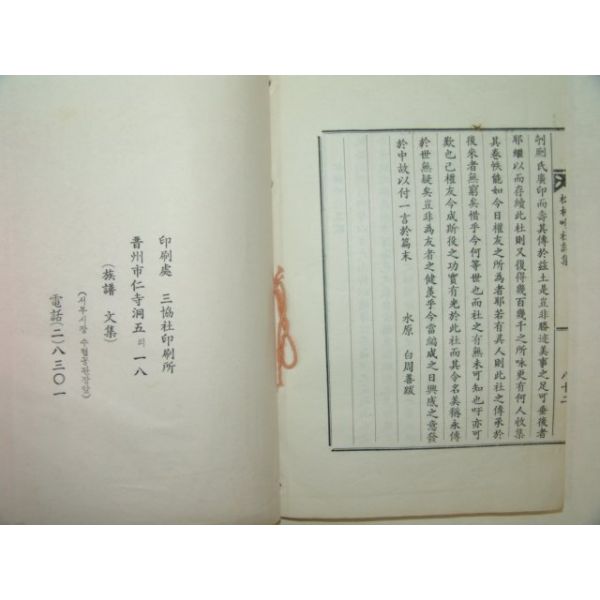 剞劂氏廣印而壽其傳於玆土是豈非勝迹美事之足可垂後者
耶繼以而存續此社則又復得幾百幾千之所咏更有何人收集
其卷帙能如今日權友之所爲者耶若有其人則此社之傳承於
後來者無窮矣惜乎今何等世也而社之有無未可知也吁亦可
歎也已權友今成斯後之功實有光於此社而其令名美稱永傳
於世無疑矣豈非爲友者之健羨乎今當編成之日興感之意發
於中故以付一言於篇末
水原 白周善跋
八十二
印刷處 三協社印刷所
晋州市仁寺洞五의一八
(族譜 文集)
(서부시장 수협공판장앞)
電話(二)八三〇一